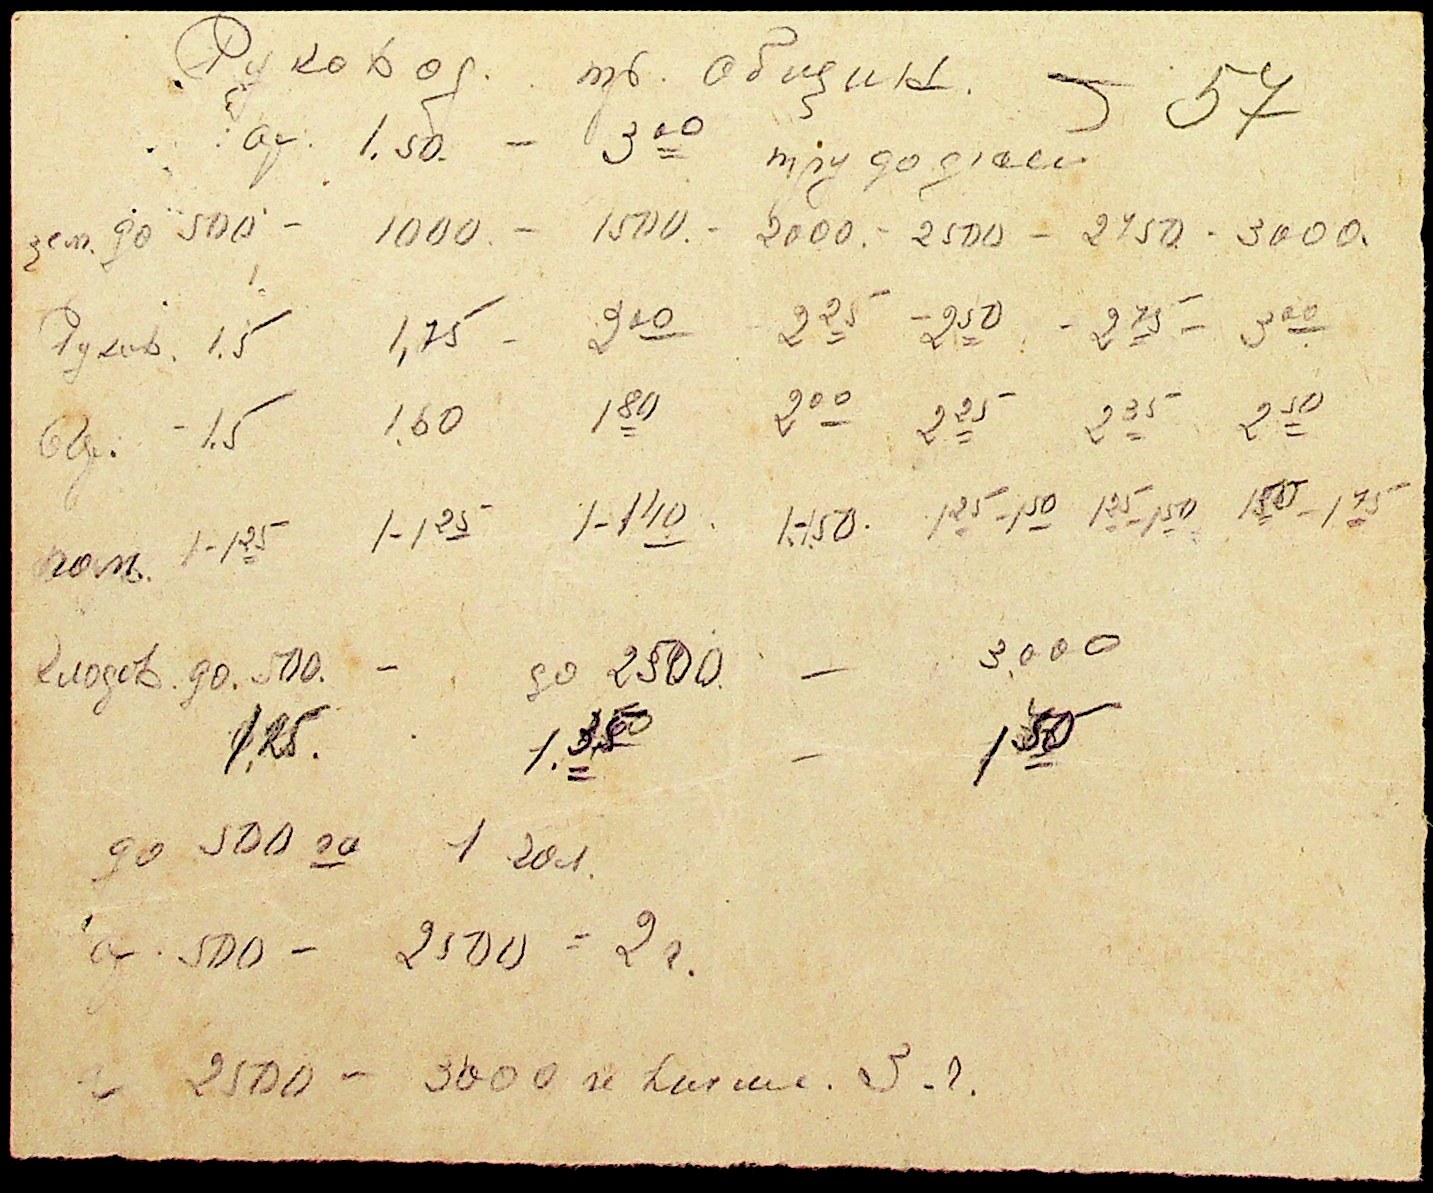 Руковод. тр. общин. 57
от. 1.50. - 3 00 трудодней
зем. до 500 - 1000. - 1500. - 2000. - 2500 - 2750. - 3000.
Руков. 1.5 1,75 - 2 00 2 25 - 2 50 - 2 75 - 3 00
- 1.5 1.60 1 80 2 00 2 25 2 35 2 50
пом. 1-1 25 1-1 25 1-1 40. 1-1.50. 1 25 - 1 50 1 25 - 1 50 1 50 - 1 75
Кладов. до. 500. - до 2500. - 3.000
1,25. 1. - 1 50
до 500 га 1 гол.
от. 500 - 2500 = 2 г.
2500 - 3000 и выше. 3 - г.